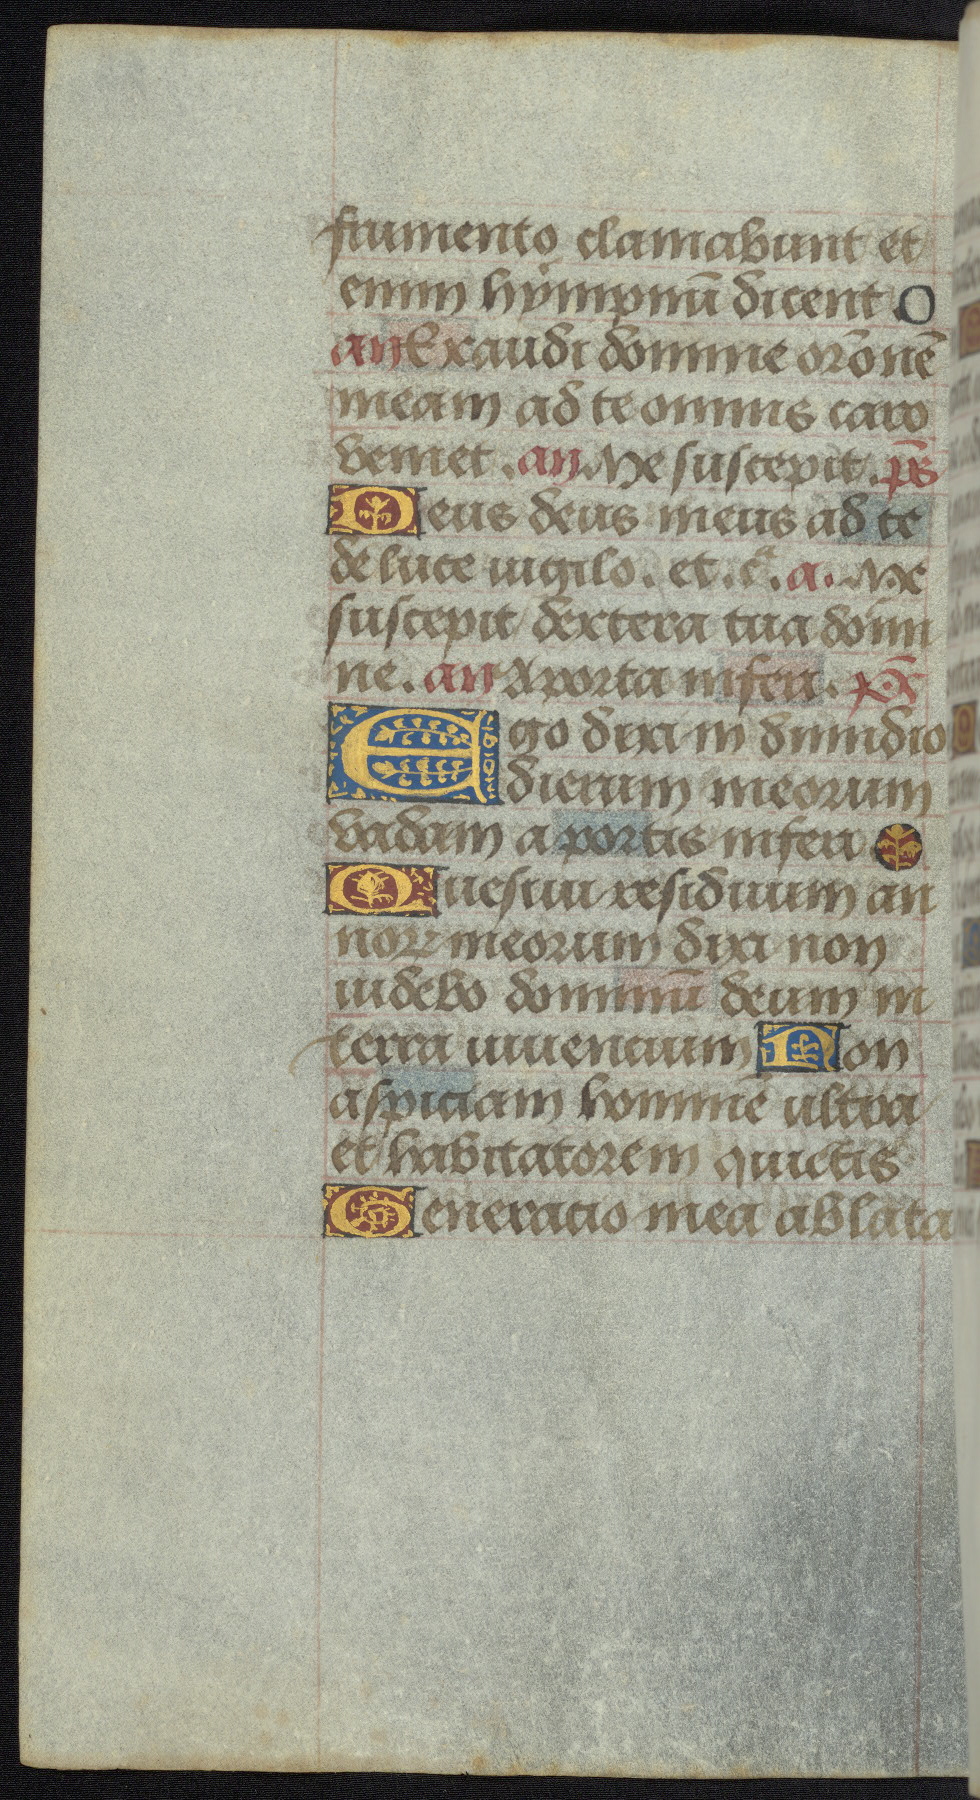 frumento clamabunt et
enim hÿmpnū dicent O
an Exaudi domine orōnē
meam ad te omnis caro
veniet . an. Me suscepit . ps̄
Deus deus meus ad te
de luce uigilo . et . cᷓ . a . Me
suscepit dextera tua domi
ne . an A porta inferi .
Ego dixi in dimidio
dierum meorum
vadam a portis inferi
Quesiui residuum an
noꝝ meorum dixi non
uidebo dominū deum in
terra uiuencium Non
aspiciam hominē ultra
et habitatorem quietis
Generacio mea ablata